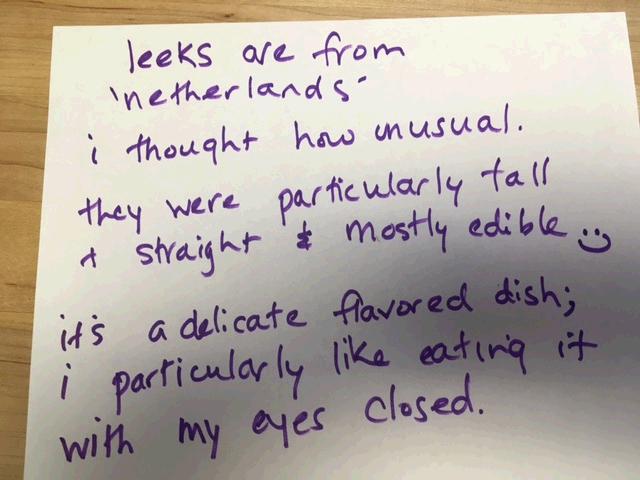 leeks are from
'netherlands'
i thought how unusual.
they were particularly tall
+ straight & mostly edible :)
it's a delicate flavored dish;
i particularly like eating it
with my eyes closed.